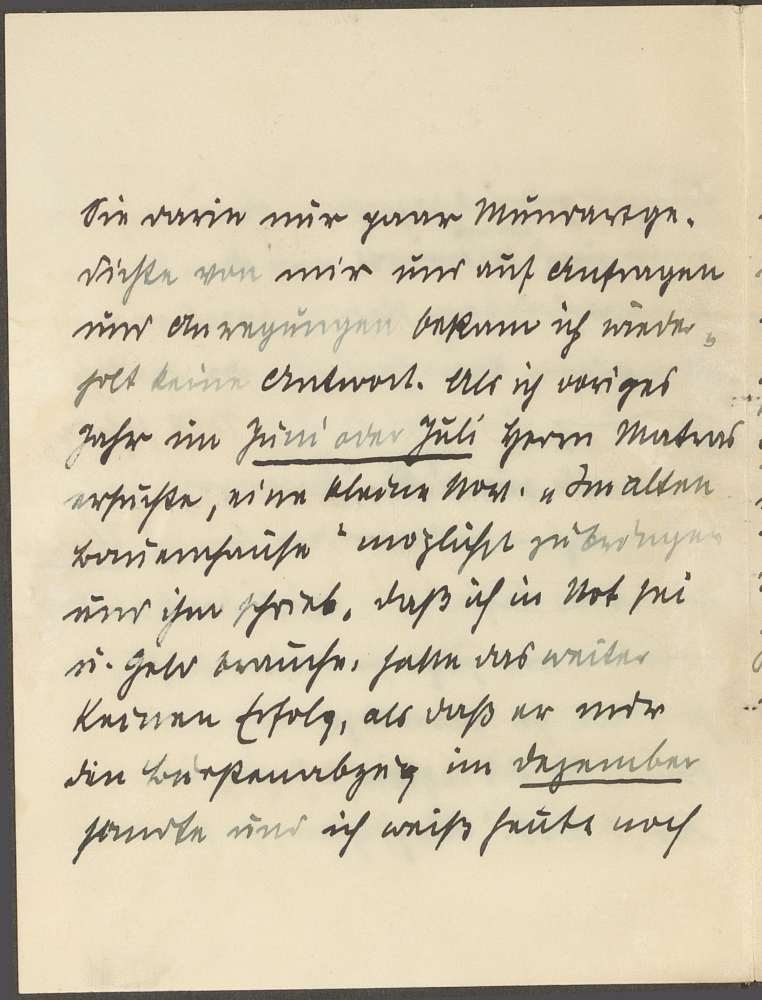 Sie darin nur paar Mundartge-
dichte von mir und auf Anfragen
und Anregungen bekam ich wieder-
holt keine Antwort. Als ich voriges
Jahr im Juni oder Juli Herrn Matras
ersuchte, eine kleine Nov. „Im alten
Bauernhause" möglichst zu bringen
und ihm schrieb, daß ich in Not sei
u. Geld brauche, hatte das weiter
keinen Erfolg, als daß er mir
den Bürstenabzug im Dezember
sandte und ich weiß heute noch